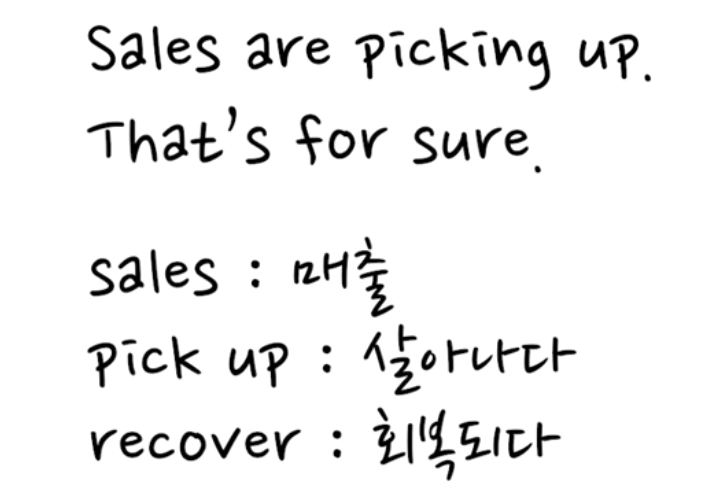 Sales are picking up.
That's for sure.
sales : 매출
pick up : 살아나다
recover : 회복되다